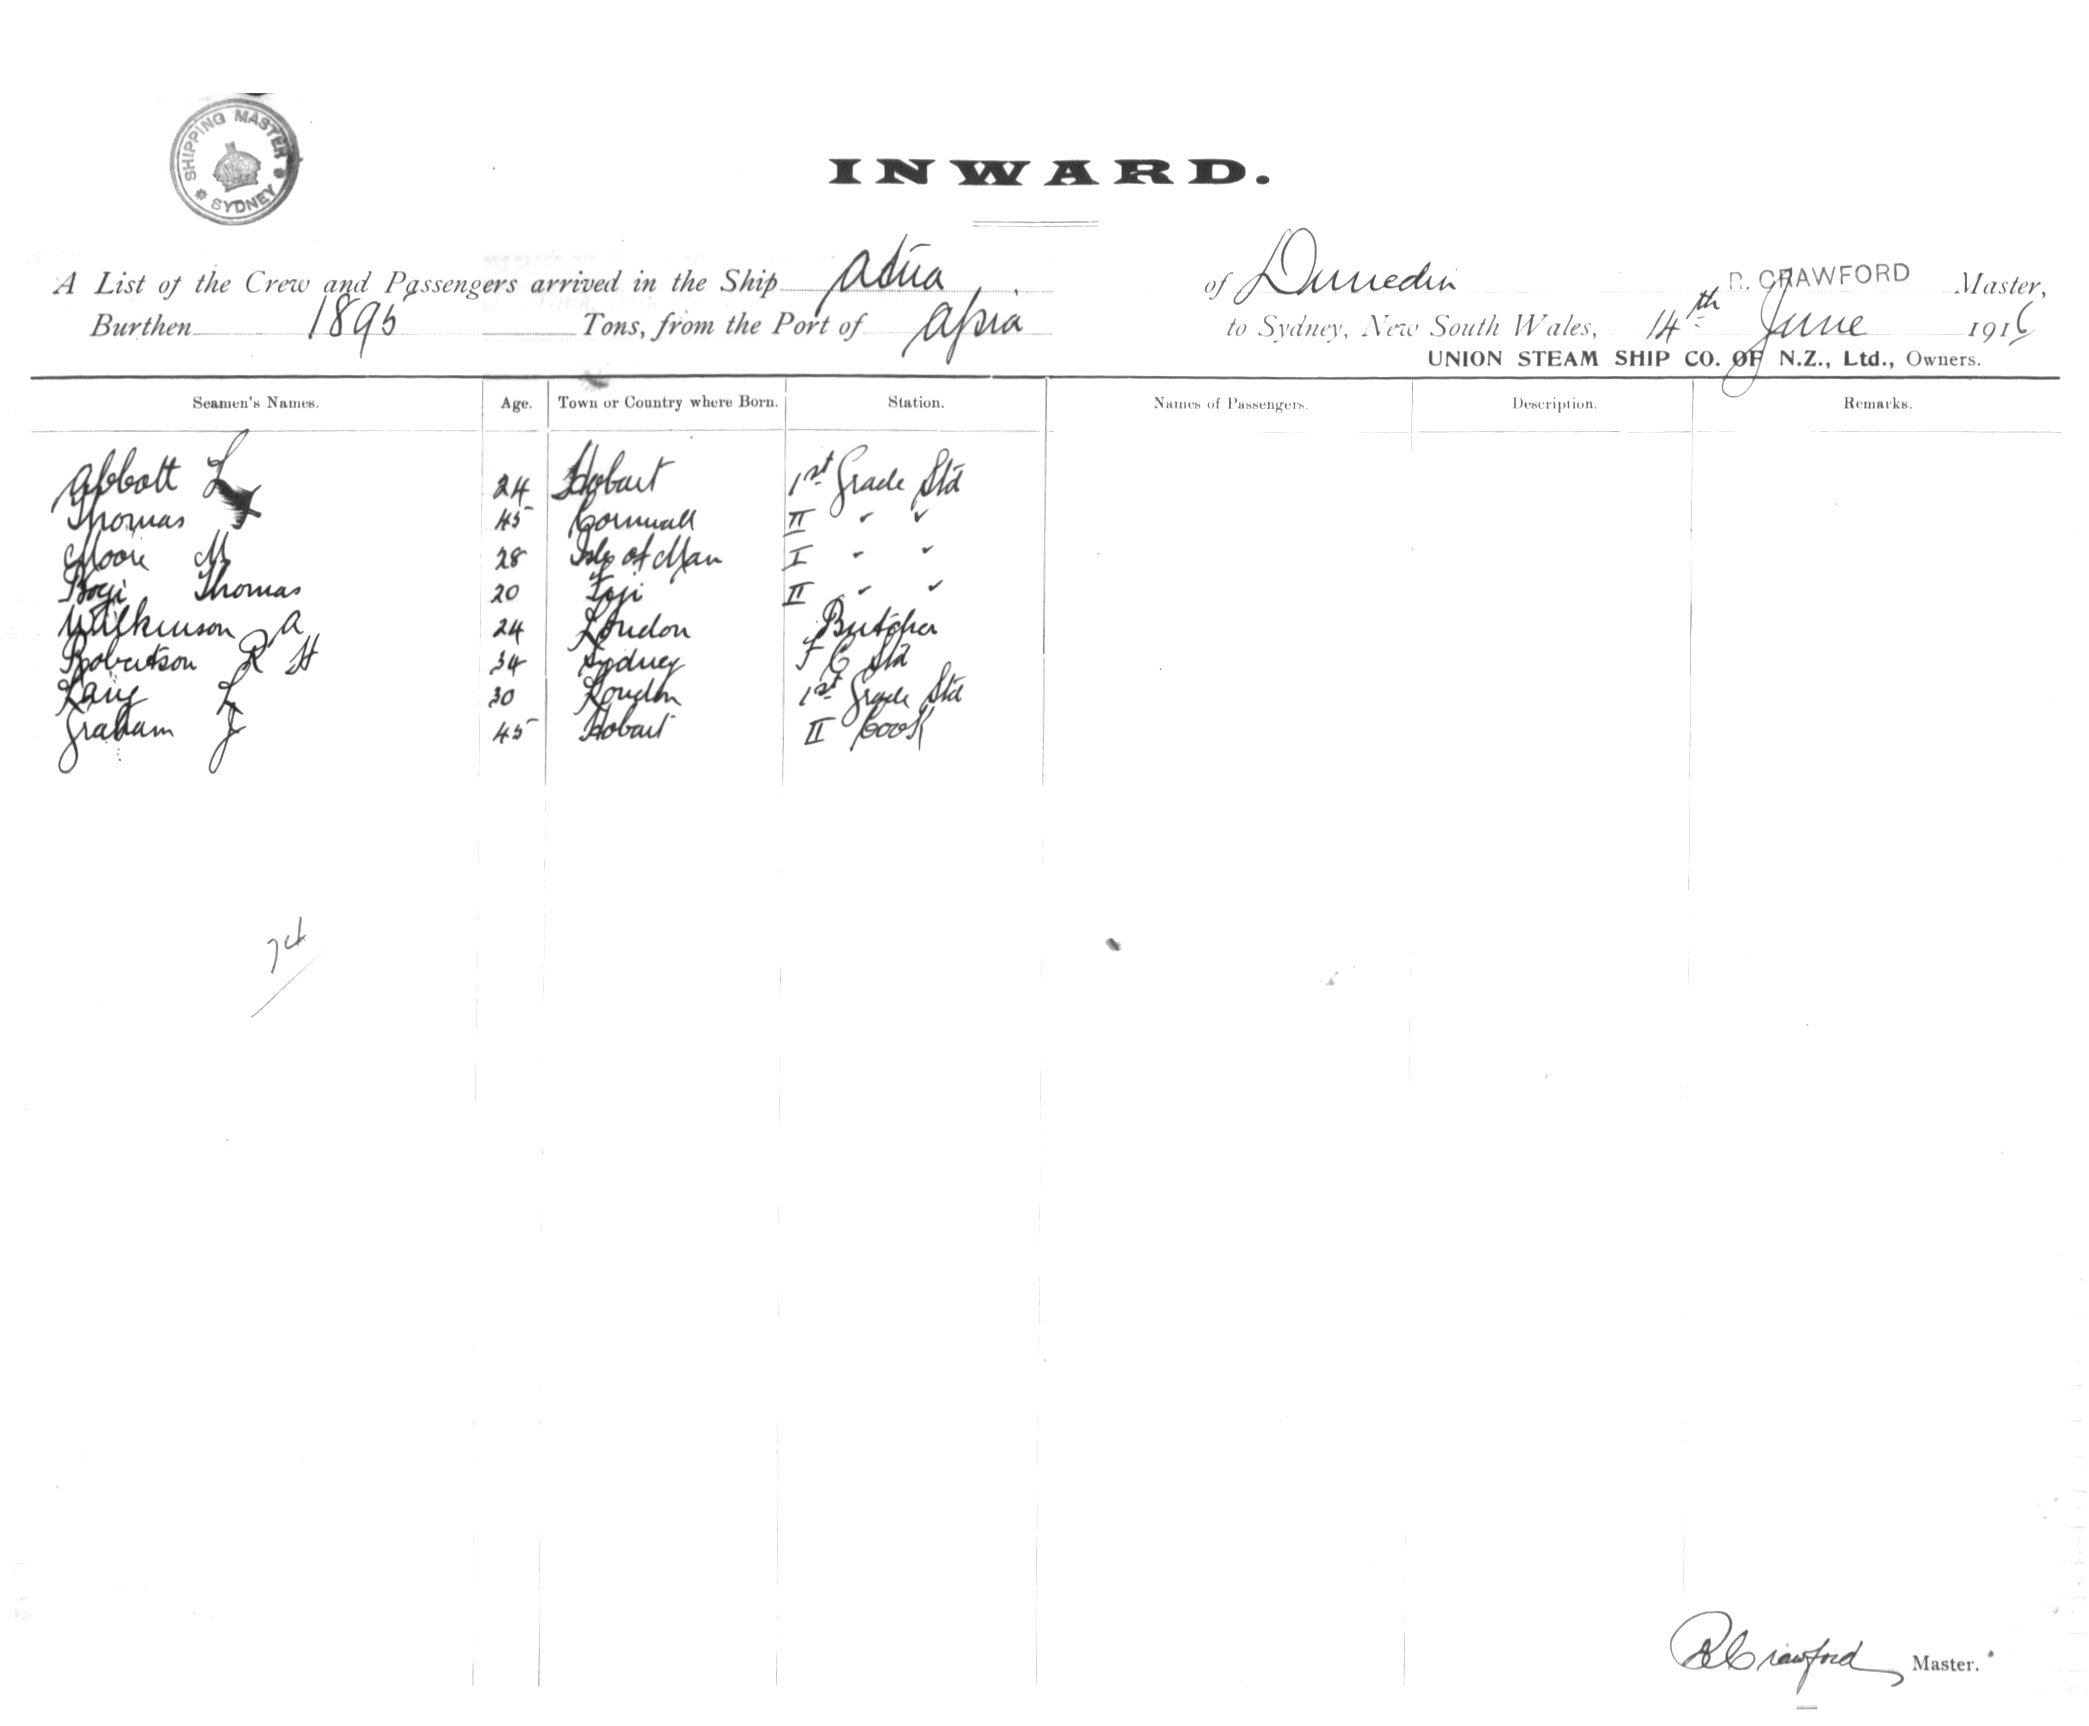 SHIPPING MASTER
SYDNEY
INWARD.
A List of the Crew and Passengers arrived in the Ship Atua of Dunedin R. CRAWFORD Master,
Burthen 1895 Tons, from the Port of Apia to Sydney, New South Wales, 14th June 1916
UNION STEAM SHIP CO. OF N.Z., Ltd., Owners.
Seamen's Names. Age. Town or Country where Born. Station. Names of Passengers. Description. Remarks.
Abbott L 24 Hobart 1st Grade Std
Thomas 45 Cornwall II " "
Moore M 28 Isle of Man I " "
Thomas 20 Fiji II " "
Wilkinson A 24 London Butcher
Robertson R H 34 Sydney F C Std
Laing L 30 London 1st Grade Std
Graham J 45 Hobart II Cook
74
R Crawford Master.